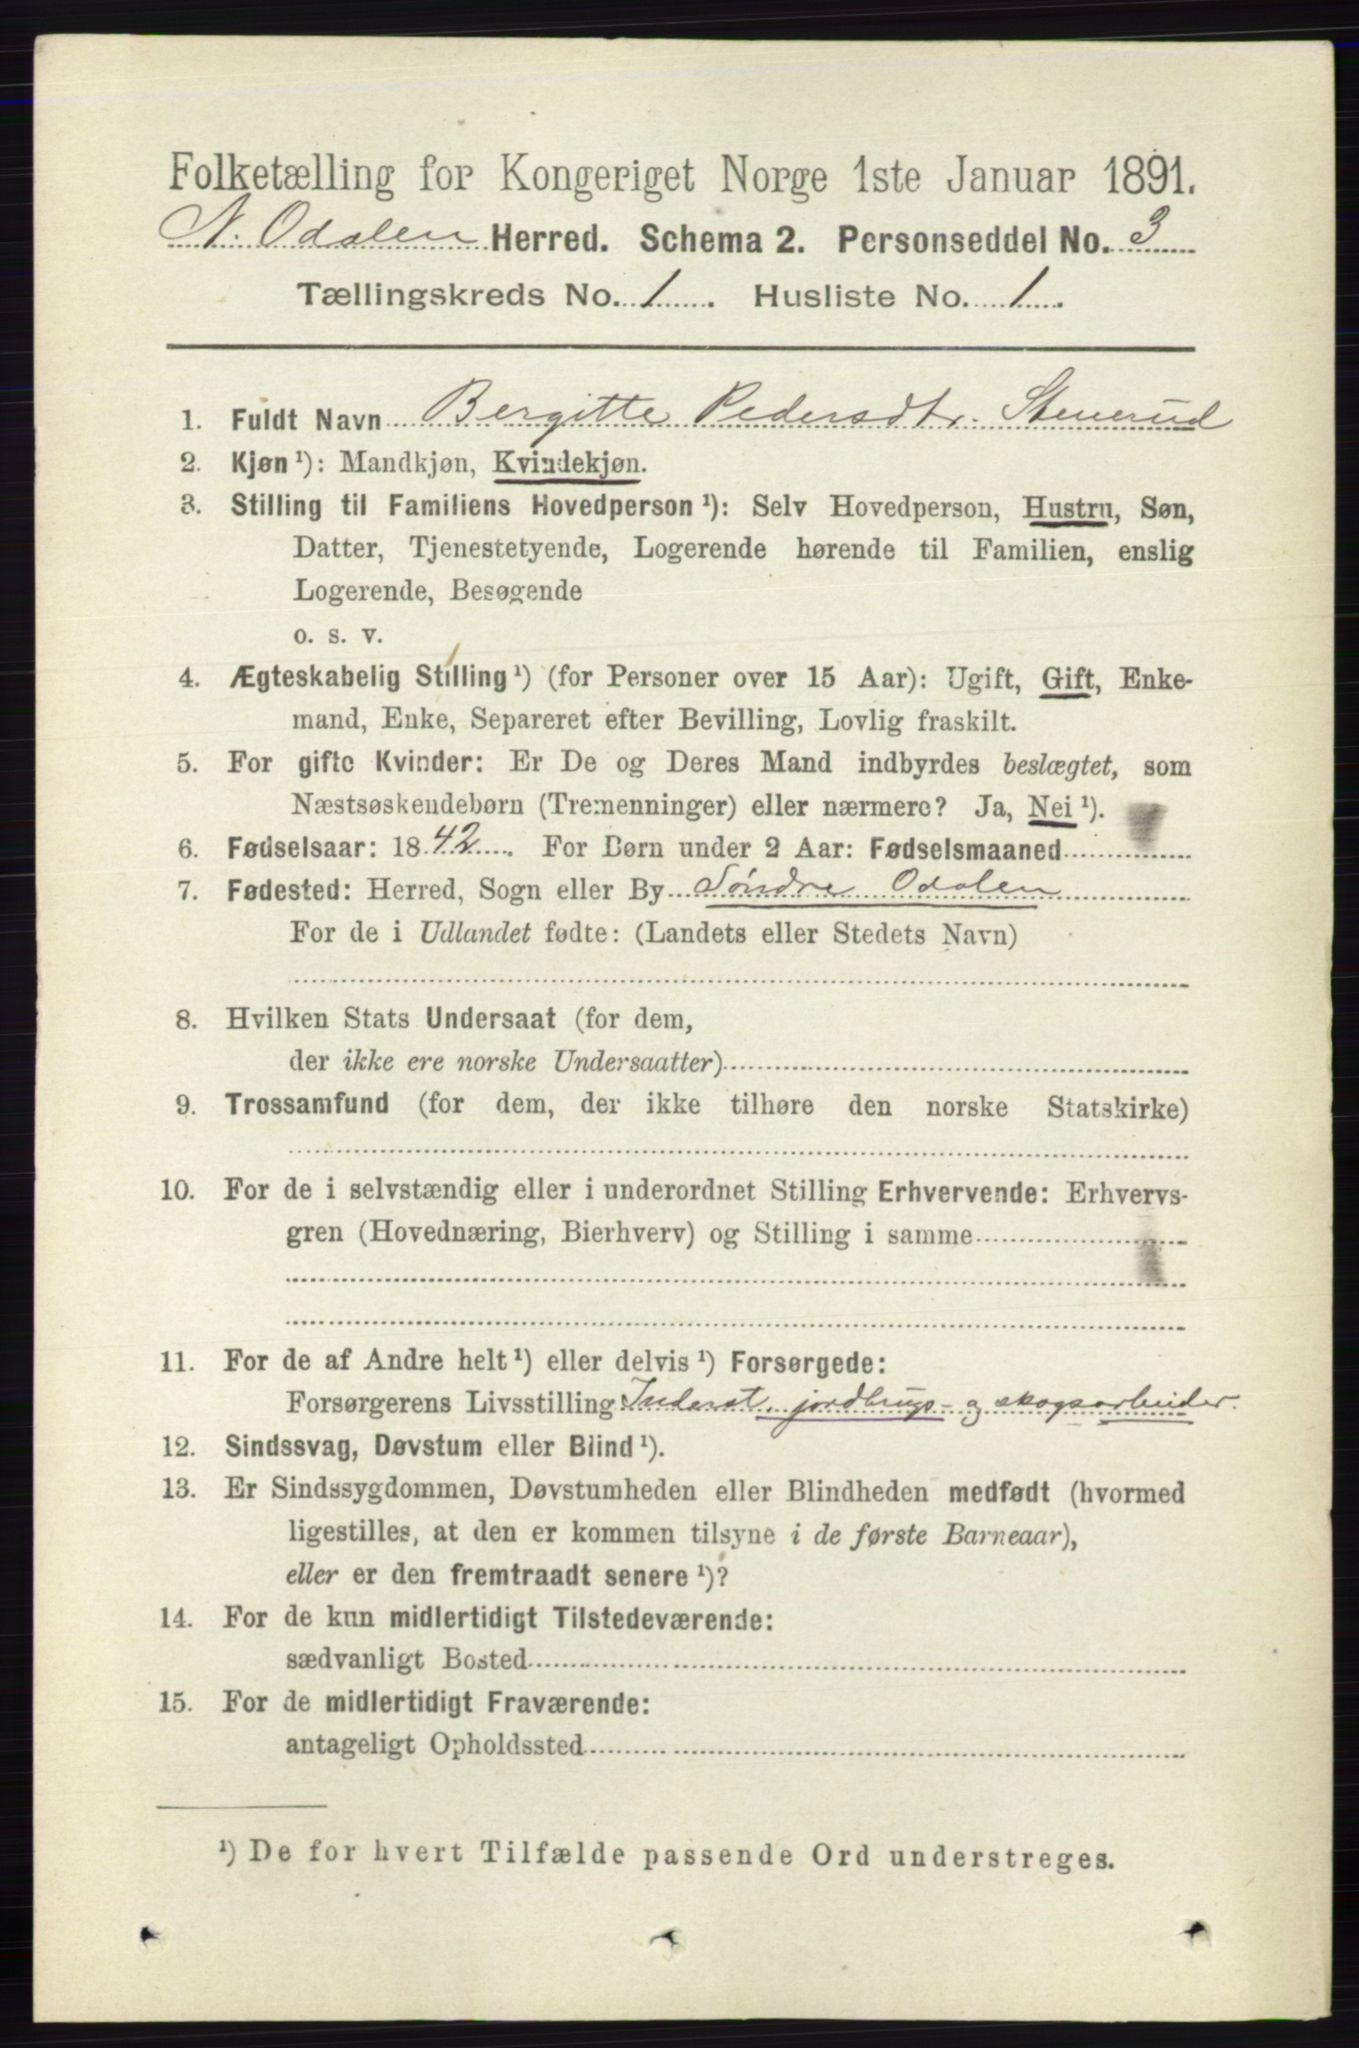 Folketælling for Kongeriget Norge 1ste Januar 1891.
N. Odalen Herred. Schema 2. Personseddel No. 3
Tællingskreds No. 1. Husliste No. 1.
1. Fuldt Navn Bergitte Pedersdtr. Stenerud
2. Kjøn¹): Mandkjøn, Kvindekjøn.
3. Stilling til Familiens Hovedperson¹): Selv Hovedperson, Hustru, Søn,
Datter, Tjenestetyende, Logerende hørende til Familien, enslig
Logerende, Besøgende
o. s. v.
4. Ægteskabelig Stilling¹) (for Personer over 15 Aar): Ugift, Gift, Enke-
mand, Enke, Separeret efter Bevilling, Lovlig fraskilt.
5. For gifte Kvinder: Er De og Deres Mand indbyrdes beslægtet, som
Næstsøskendebørn (Tremenninger) eller nærmere? Ja, Nei¹).
6. Fødselsaar: 1842. For Børn under 2 Aar: Fødselsmaaned
7. Fødested: Herred, Sogn eller By Søndre Odalen
For de i Udlandet fødte: (Landets eller Stedets Navn)
8. Hvilken Stats Undersaat (for dem,
der ikke ere norske Undersaatter)
9. Trossamfund (for dem, der ikke tilhøre den norske Statskirke)
10. For de i selvstændig eller i underordnet Stilling Erhvervende: Erhvervs-
gren (Hovednæring, Bierhverv) og Stilling i samme
11. For de af Andre helt¹) eller delvis¹) Forsørgede:
Forsørgerens Livsstilling Inderst, jordbrugs- og skogsarbeider.
12. Sindssvag, Døvstum eller Blind¹).
13. Er Sindssygdommen, Døvstumheden eller Blindheden medfødt (hvormed
ligestilles, at den er kommen tilsyne i de første Barneaar),
eller er den fremtraadt senere¹)?
14. For de kun midlertidigt Tilstedeværende:
sædvanligt Bosted
15. For de midlertidigt Fraværende:
antageligt Opholdssted
¹) De for hvert Tilfælde passende Ord understreges.